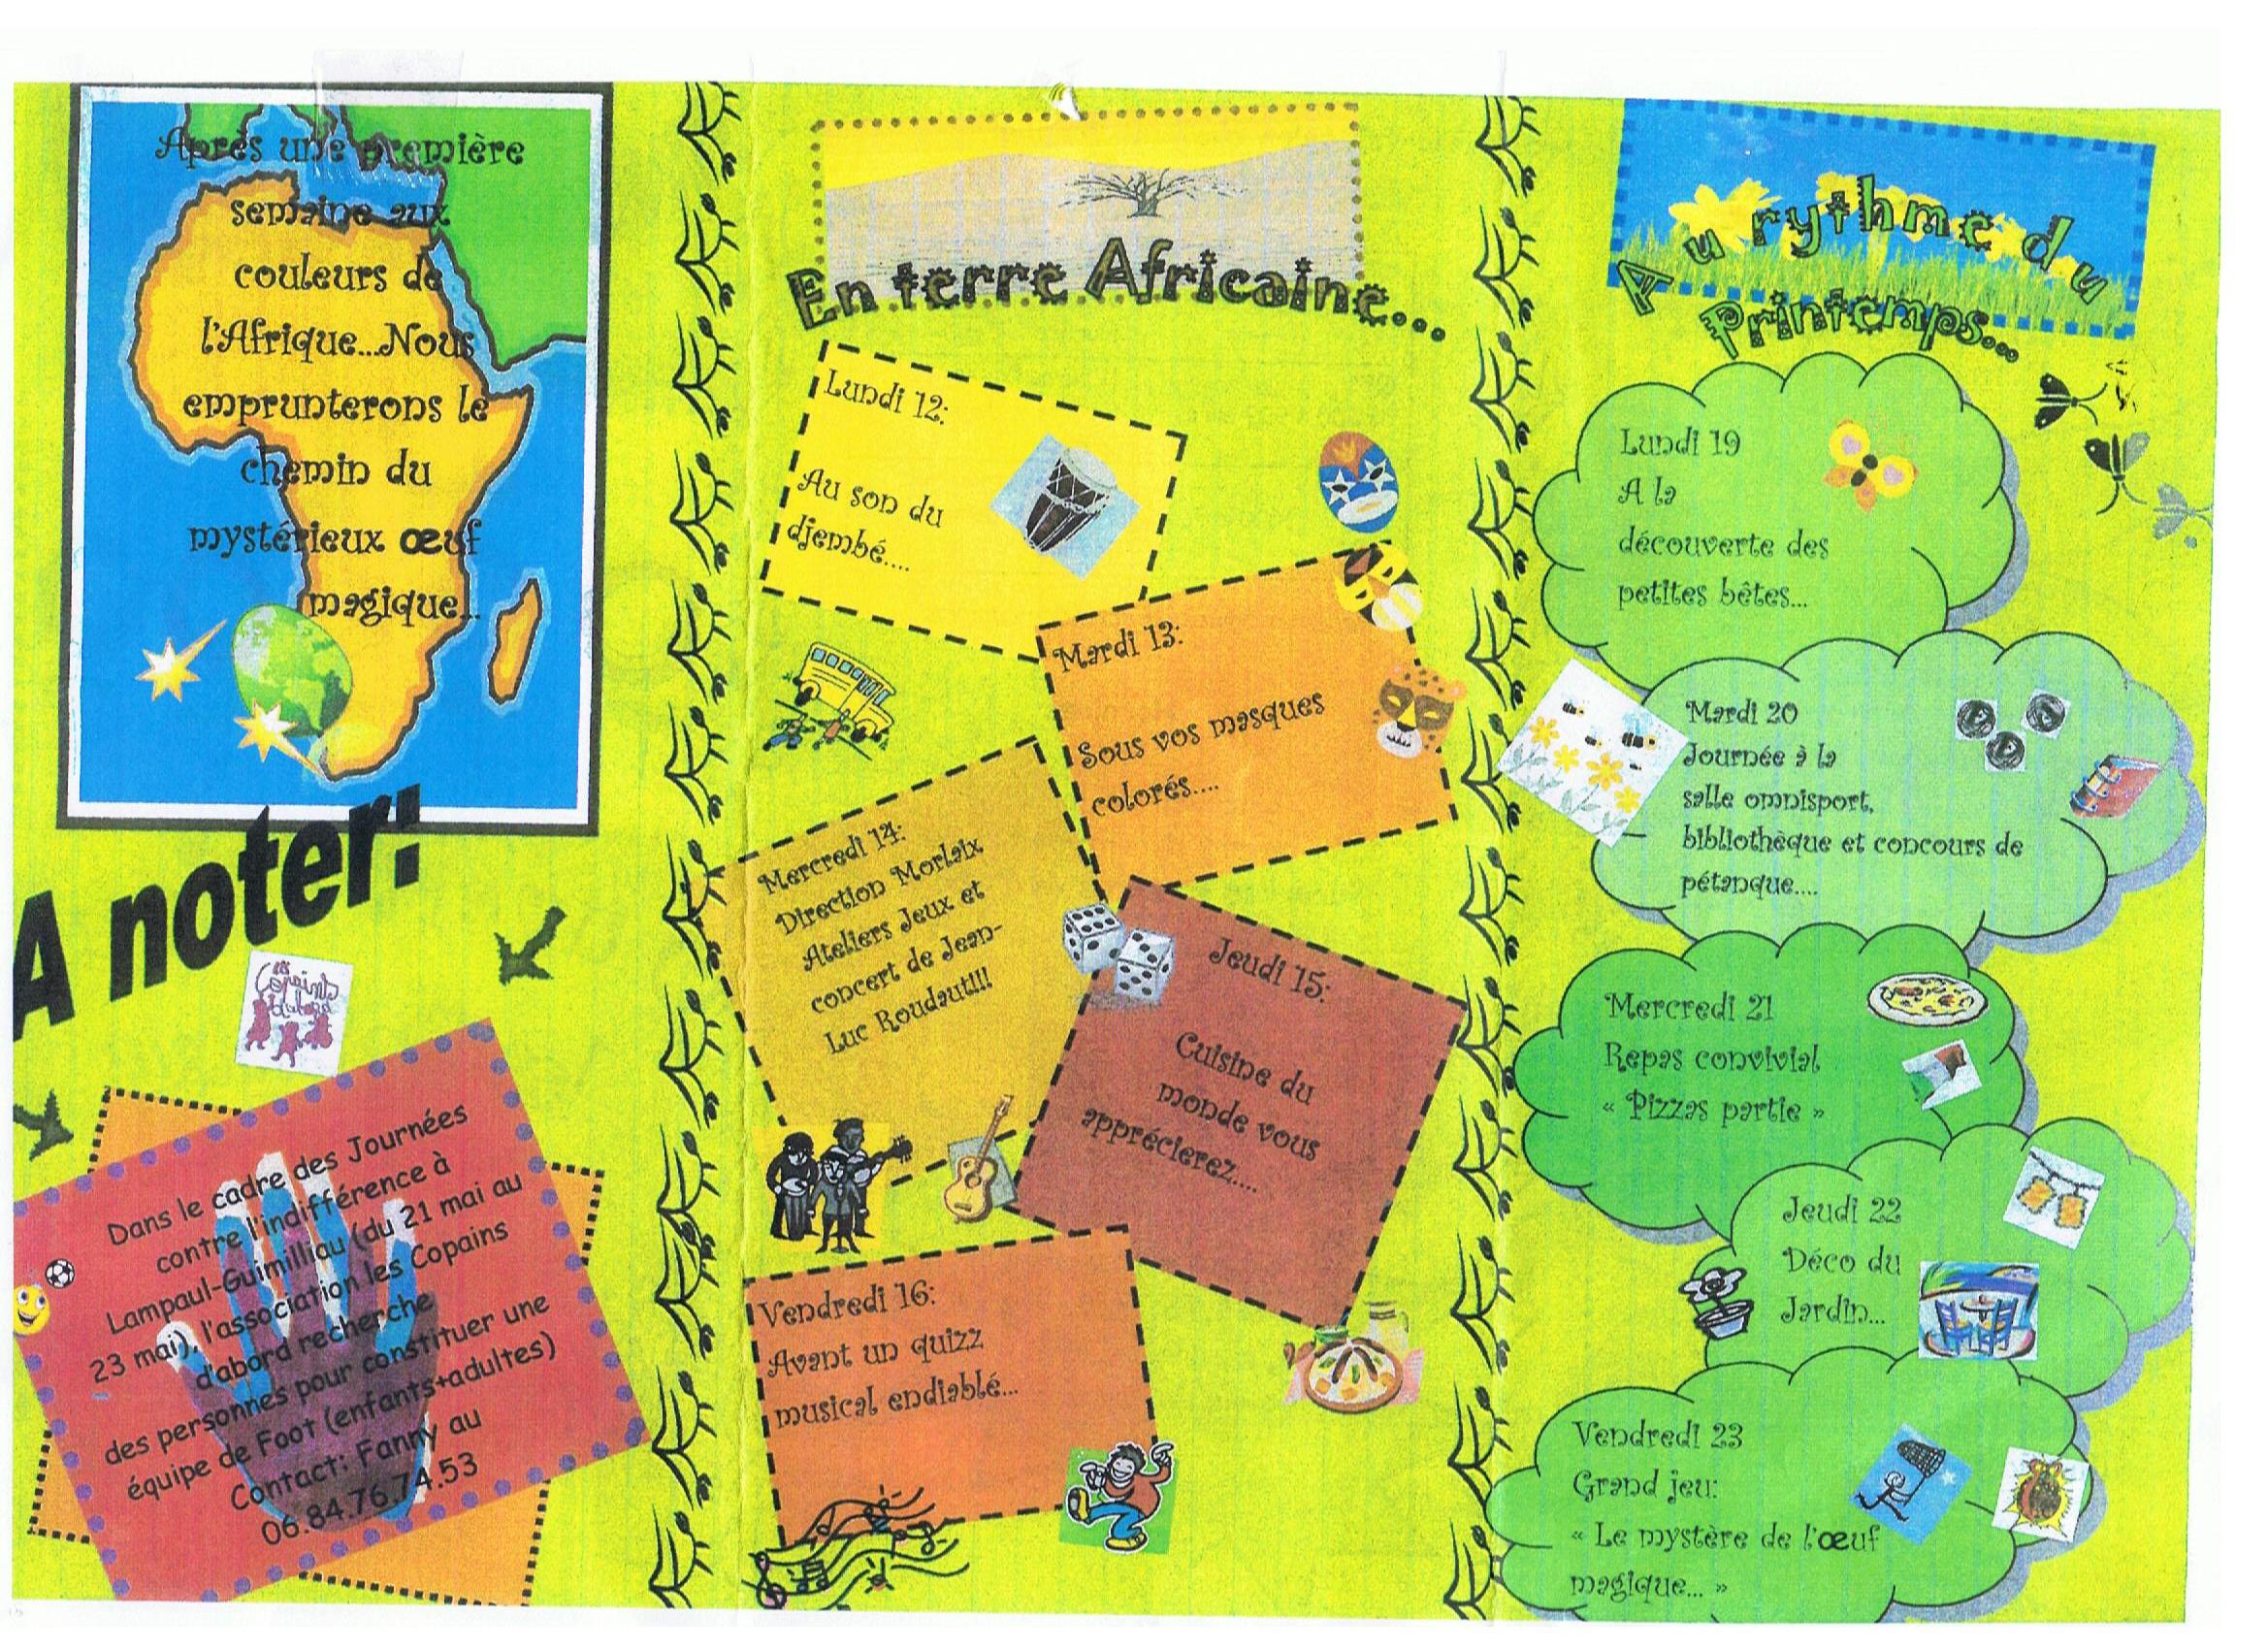 Après une première
semaine aux
couleurs de
l'Afrique...Nous
emprunterons le
chemin du
mystérieux œuf
magique...
A noter!
Dans le cadre des Journées
contre l'indifférence à
Lampaul-Guimilliau (du 21 mai au
23 mai), l'association les Copains
d'abord recherche
des personnes pour constituer une
équipe de Foot (enfants+adultes)
Contact: Fanny au
06.84.76.74.53
En terre Africaine...
Lundi 12:
Au son du
djembé....
Mardi 13:
Sous vos masques
colorés....
Mercredi 14:
Direction Morlaix
Ateliers Jeux et
concert de Jean-
Luc Roudaut!!!
Jeudi 15:
Cuisine du
monde vous
apprécierez....
Vendredi 16:
Avant un quizz
musical endiablé...
Au rythme du
Printemps...
Lundi 19
A la
découverte des
petites bêtes...
Mardi 20
Journée à la
salle omnisport,
bibliothèque et concours de
pétanque....
Mercredi 21
Repas convivial
« Pizzas partie »
Jeudi 22
Déco du
Jardin...
Vendredi 23
Grand jeu:
« Le mystère de l'œuf
magique... »